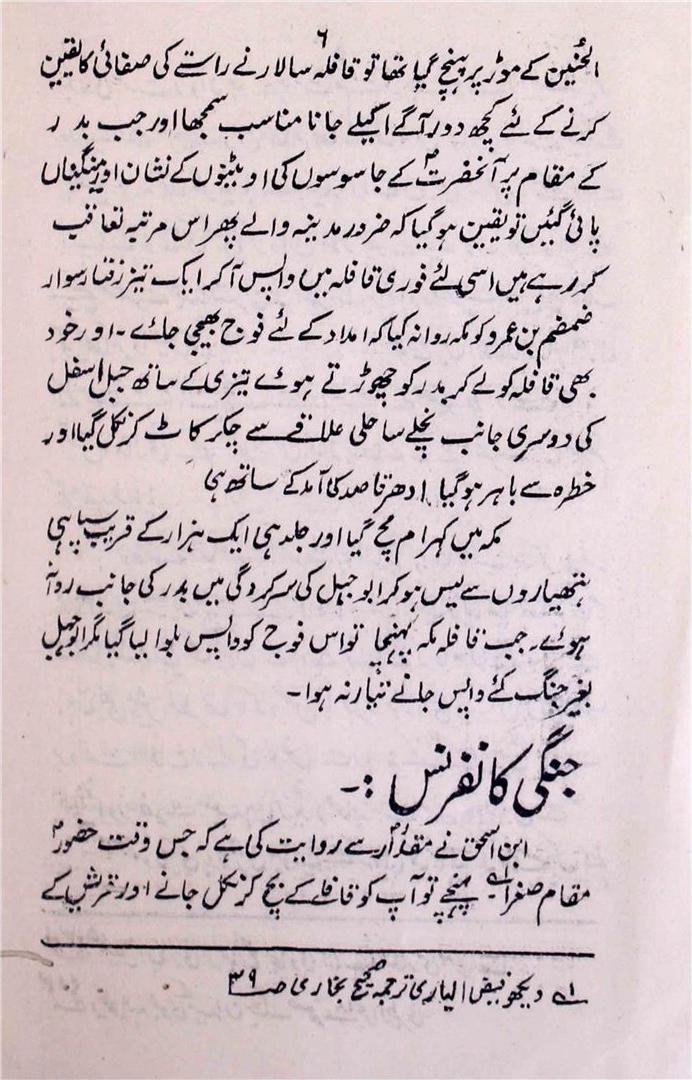 ۶
الحنین کے موڑ پر پہنچ گیا تھا تو قافلہ سالار نے راستے کی صفائی کا یقین
کرنے کے لئے کچھ دور آگے اکیلے جانا مناسب سمجھا اور جب بدر
کے مقام پر آنحضرتؐ کے جاسوسوں کی اونٹنیوں کے نشان اور مینگنیاں
پائی گئیں تو یقین ہو گیا کہ ضرور مدینہ والے پھر اس مرتبہ تعاقب
کر رہے ہیں اسی لئے فوری قافلہ میں واپس آ کر ایک تیز رفتار سوار
ضمضم بن عمرو کو مکہ روانہ کیا کہ امداد کے لئے فوج بھیجی جائے ۔ اور خود
بھی قافلہ کو لے کر بدر کو چھوڑتے ہوئے تیزی کے ساتھ جبل اسفل
کی دوسری جانب نچلے ساحلی علاقے سے چکر کاٹ کر نکل گیا اور
خطرہ سے باہر ہو گیا ادھر قاصد کی آمد کے ساتھ ہی
مکہ میں کہرام مچ گیا اور جلد ہی ایک ہزار کے قریب سپاہی
ہتھیاروں سے لیس ہو کر ابو جہل کی سرکردگی میں بدر کی جانب روانہ
ہوئے۔ جب قافلہ مکہ پہنچا تو اس فوج کو واپس بلوا لیا گیا مگر ابو جہل
بغیر جنگ کئے واپس جانے تیار نہ ہوا ۔
جنگی کانفرنس :۔
ابن اسحٰق نے مقدارؓ سے روایت کی ہے کہ جس وقت حضورؐ
مقام صغرا ؎۱ پہنچے تو آپ کو قافلے کے بچ کر نکل جانے اور قریش کے
؎۱ دیکھو فیض الباری ترجمہ صحیح بخاری صـ ۳۹